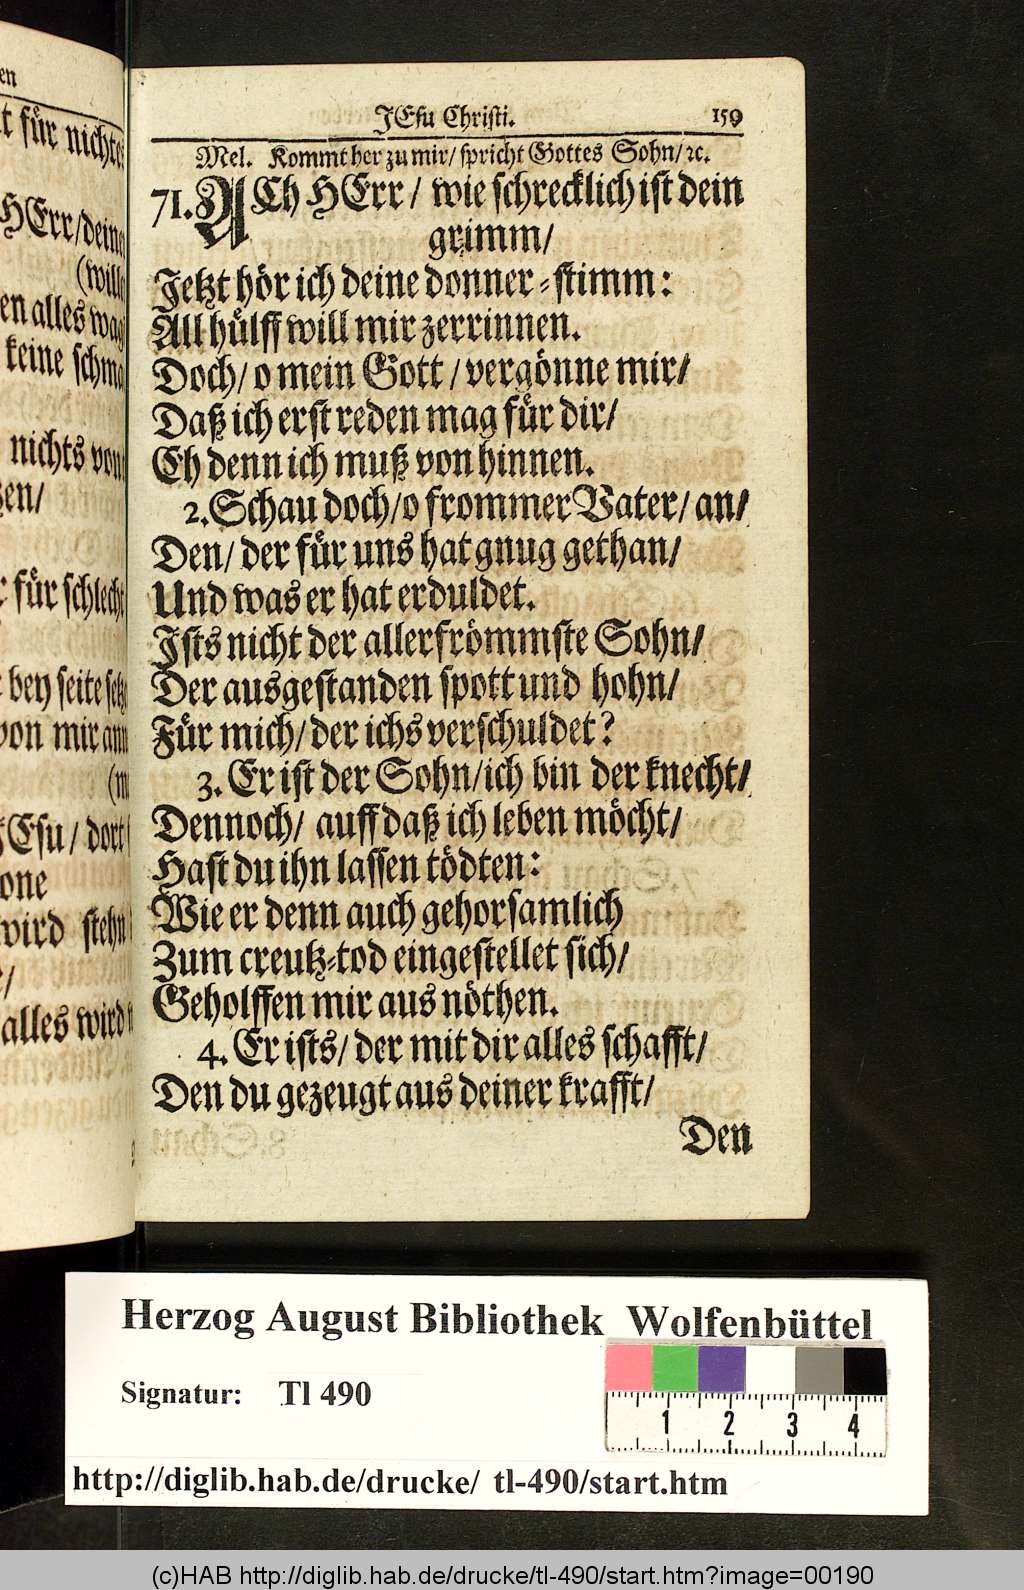 en
für nichtes
HErr/deine
(wille
en alles wag
keine schma
nichts von
zen/
für schlecht
bey seite setz
von mir ann
(m
JEsu/ dort
one
wird stehn
alles wird
JEsu Christi. 159
Mel. Kommt her zu mir/ spricht Gottes Sohn/ ꝛc.
71. ACh HErr/ wie schrecklich ist dein
grimm/
Jetzt hör ich deine donner-stimm:
All hülff will mir zerrinnen.
Doch/ o mein Gott/ vergönne mir/
Daß ich erst reden mag für dir/
Eh denn ich muß von hinnen.
2. Schau doch/ o frommer Vater/ an/
Den/ der für uns hat gnug gethan/
Und was er hat erduldet.
Ists nicht der allerfrömmste Sohn/
Der ausgestanden spott und hohn/
Für mich/ der ichs verschuldet?
3. Er ist der Sohn/ ich bin der knecht/
Dennoch/ auff daß ich leben möcht/
Hast du ihn lassen tödten:
Wie er denn auch gehorsamlich
Zum creutz-tod eingestellet sich/
Geholffen mir aus nöthen.
4. Er ists/ der mit dir alles schafft/
Den du gezeugt aus deiner krafft/
Den
Herzog August Bibliothek Wolfenbüttel
Signatur: Tl 490
1 2 3 4
http://diglib.hab.de/drucke/ tl-490/start.htm
(c)HAB http://diglib.hab.de/drucke/tl-490/start.htm?image=00190